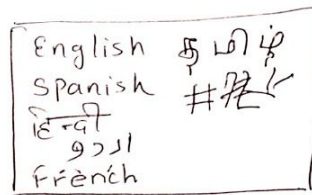 English தமிழ்
Spanish
हिन्दी
اردو
Frènch